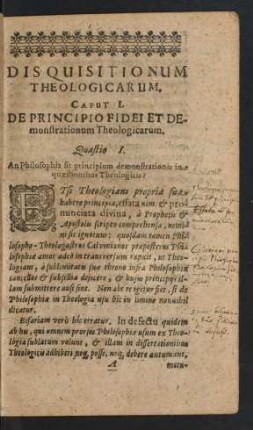 DISQUISITIONUM
THEOLOGICARUM,
CAPUT I.
DE PRINCIPIO FIDEI ET DE-
monstrationum Theologicarum.
Quæstio I.
An Philosophia sit principium demonstrationis in
quæstionibus Theologicis?
ETsi Theologiam propria sua
habere principia, effata nim. & pro-
nunciata divina, à Prophetis &
Apostolis scripto comprehensa, nemini
nisi ignotum: quidam tamen Phi-
losopho-Theologastros Calvinianos præposterus Phi-
losophiæ amor adeò in transversum rapuit, ut Theo-
logiam, à sublimitate suæ throno infra Philosophiæ
cancellos & subsellia dejicere, & hujus principiis il-
lam submittere ausi sint. Non abs re igitur fiet, si de
Philosophiæ in Theologia usu hîc in limine nonnihil
dicatur.
Bifariam verò hîc erratur. In defectu quidem
ab hu, qui omnem prorsus Philosophiæ usum ex Theo-
logia sublatum volunt, & illam in dissertationibus
Theologicis adhiberi neq, posse, neq, debere autumant,
A